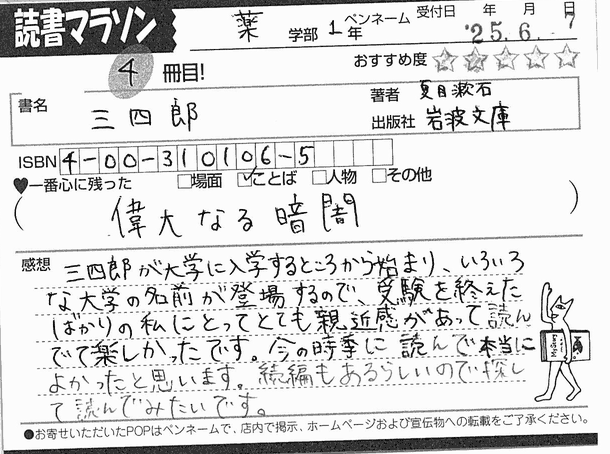 読書マラソン 薬 学部 1年 ペンネーム 受付日 年 月 日
'25.6.7
4 冊目! おすすめ度 ☆☆☆☆☆
書名 三四郎 著者 夏目漱石
出版社 岩波文庫
ISBN 4-00-310106-5
♥一番心に残った □場面 ☑ことば □人物 □その他
( 偉大なる暗闇 )
感想 三四郎が大学に入学するところから始まり、いろいろ
な大学の名前が登場するので、受験を終えた
ばかりの私にとってとても親近感があって読ん
でて楽しかったです。今の時季に読んで本当に
よかったと思います。続編もあるらしいので探し
て読んでみたいです。
●お寄せいただいたPOPはペンネームで、店内で掲示、ホームページおよび宣伝物への転載をご了承ください。